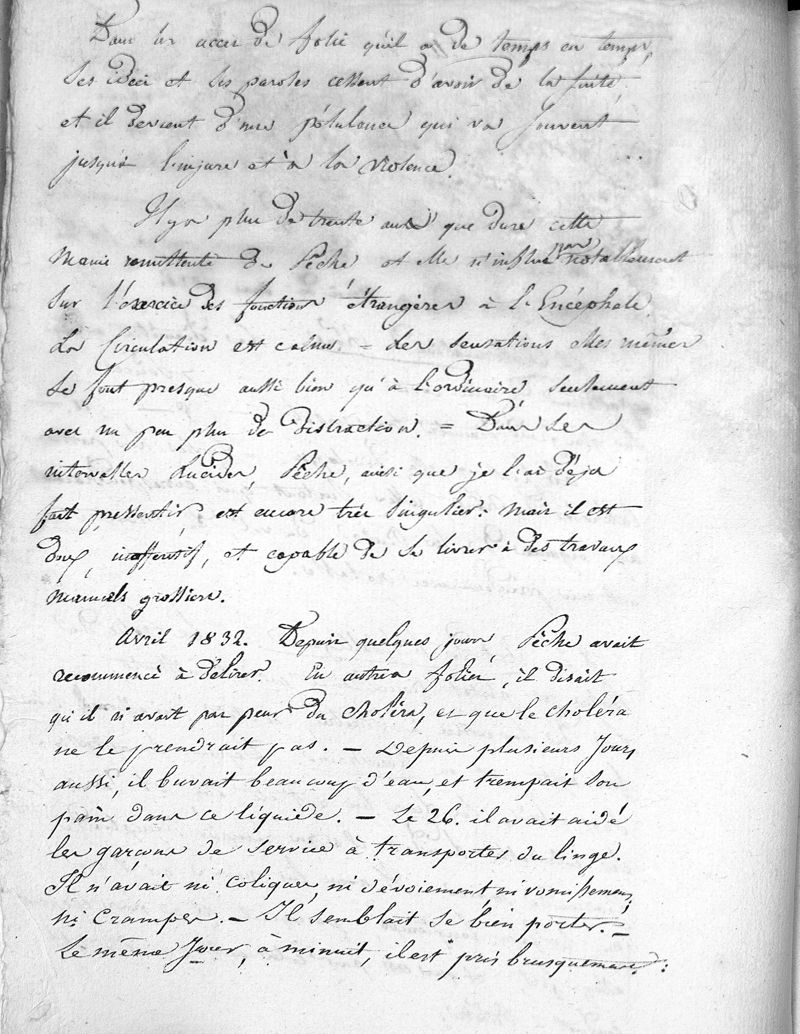 Dans les accès de folie qu'il a de temps en temps,
ses idées et ses paroles cessent d'avoir de la suite,
et il devient d'une pétulence qui va souvent
jusqu'à l'injure et à la violence.
Il y a plus de trente ans que dure cette
manie rémittente de Pêche et elle n'influe pas notablement
sur l'exercice des fonctions étrangères à l'Encéphale.
La Circulation est calme = les sensations elles mêmes
se font presque aussi bien qu'à l'ordinaire seulement
avec un peu plus de distraction. = Dans les
intervalles lucides, Pêche, ainsi que je l'ai déjà
fait pressentir, est encore très singulier. mais il est
doux, inoffensif, et capable de se livrer à des travaux
manuels grossiers.
Avril 1832. Depuis quelques jours, Pêche avait
recommencé à délirer. En autres folies, il disait
qu'il n'avait pas peur du choléra, et que le choléra
ne le prendrait pas. — Depuis plusieurs Jours,
aussi, il buvait beaucoup d'eau, et trempait son
pain dans ce liquide. — Le 26. il avait aidé
les garçons de service à transporter du linge.
Il n'avait ni coliques, ni dévoiement ni vomissemens,
ni Crampes. — Il semblait se bien porter. =
Le même Jour, à minuit, il est pris brusquement :